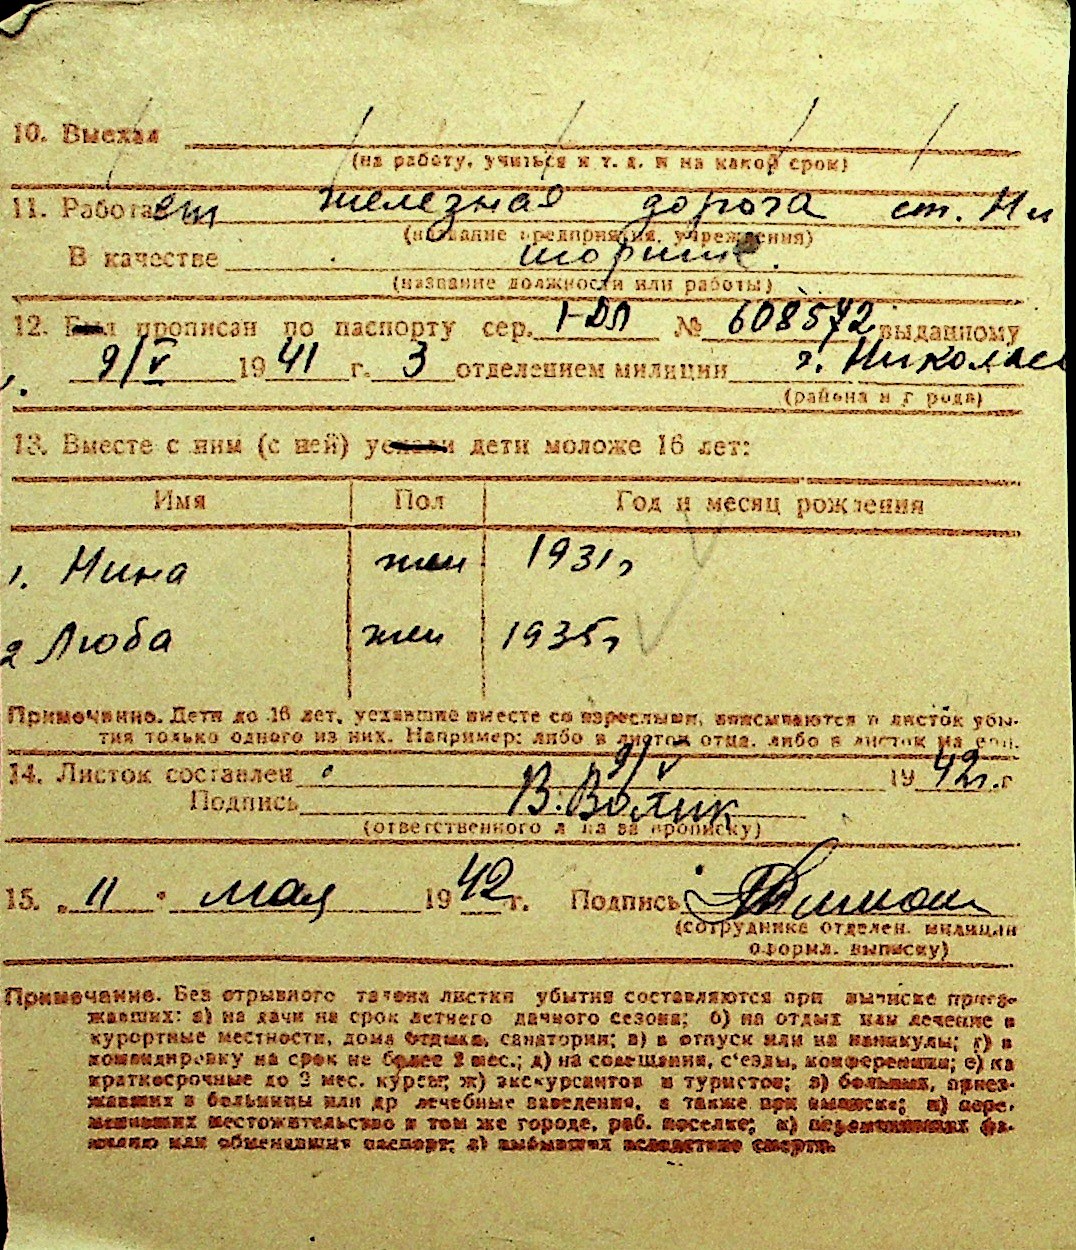 10. Выехал
(на работу, учиться и т. д. и на какой срок)
11. Работает железная дорога ст. Ни
(название предприятия, учреждения)
В качестве
(название должности или работы)
12. Был прописан по паспорту сер. 1-ДЛ № 608572 выданному
9/V 1941 г. 3 отделением милиции г. Николаев
(района и города)
13. Вместе с ним (с ней) уехали дети моложе 16 лет:
Имя Пол Год и месяц рождения
1. Нина жен 1931г
2 Люба жен 1935г
Примечание. Дети до 16 лет, уехавшие вместе со взрослыми, вписываются в листок убы-
тия только одного из них. Например: либо в листок отца, либо в листок матери.
14. Листок составлен 9/V 1942г. г
Подпись В. Волик
(ответственного лица за прописку)
15. „11" мая 1942 г. Подпись
(сотрудника отделен. милиции
оформл. выписку)
Примечание. Без отрывного талона листки убытия составляются при выписке приез-
жавших: а) на дачи на срок летнего дачного сезона; б) на отдых или лечение в
курортные местности, дома отдыха, санатории; в) в отпуск или на каникулы; г) в
командировку на срок не более 2 мес.; д) на совещания, с'езды, конференции; е) на
краткосрочные до 2 мес. курсы; ж) экскурсантов и туристов; з) больных, приез-
жавших в больницы или др лечебные заведения, а также при выписке; и) пере-
менивших местожительство в том же городе, раб. поселке; к) переменивших фа-
милию или обменявших паспорт; л) выбывших вследствие смерти.